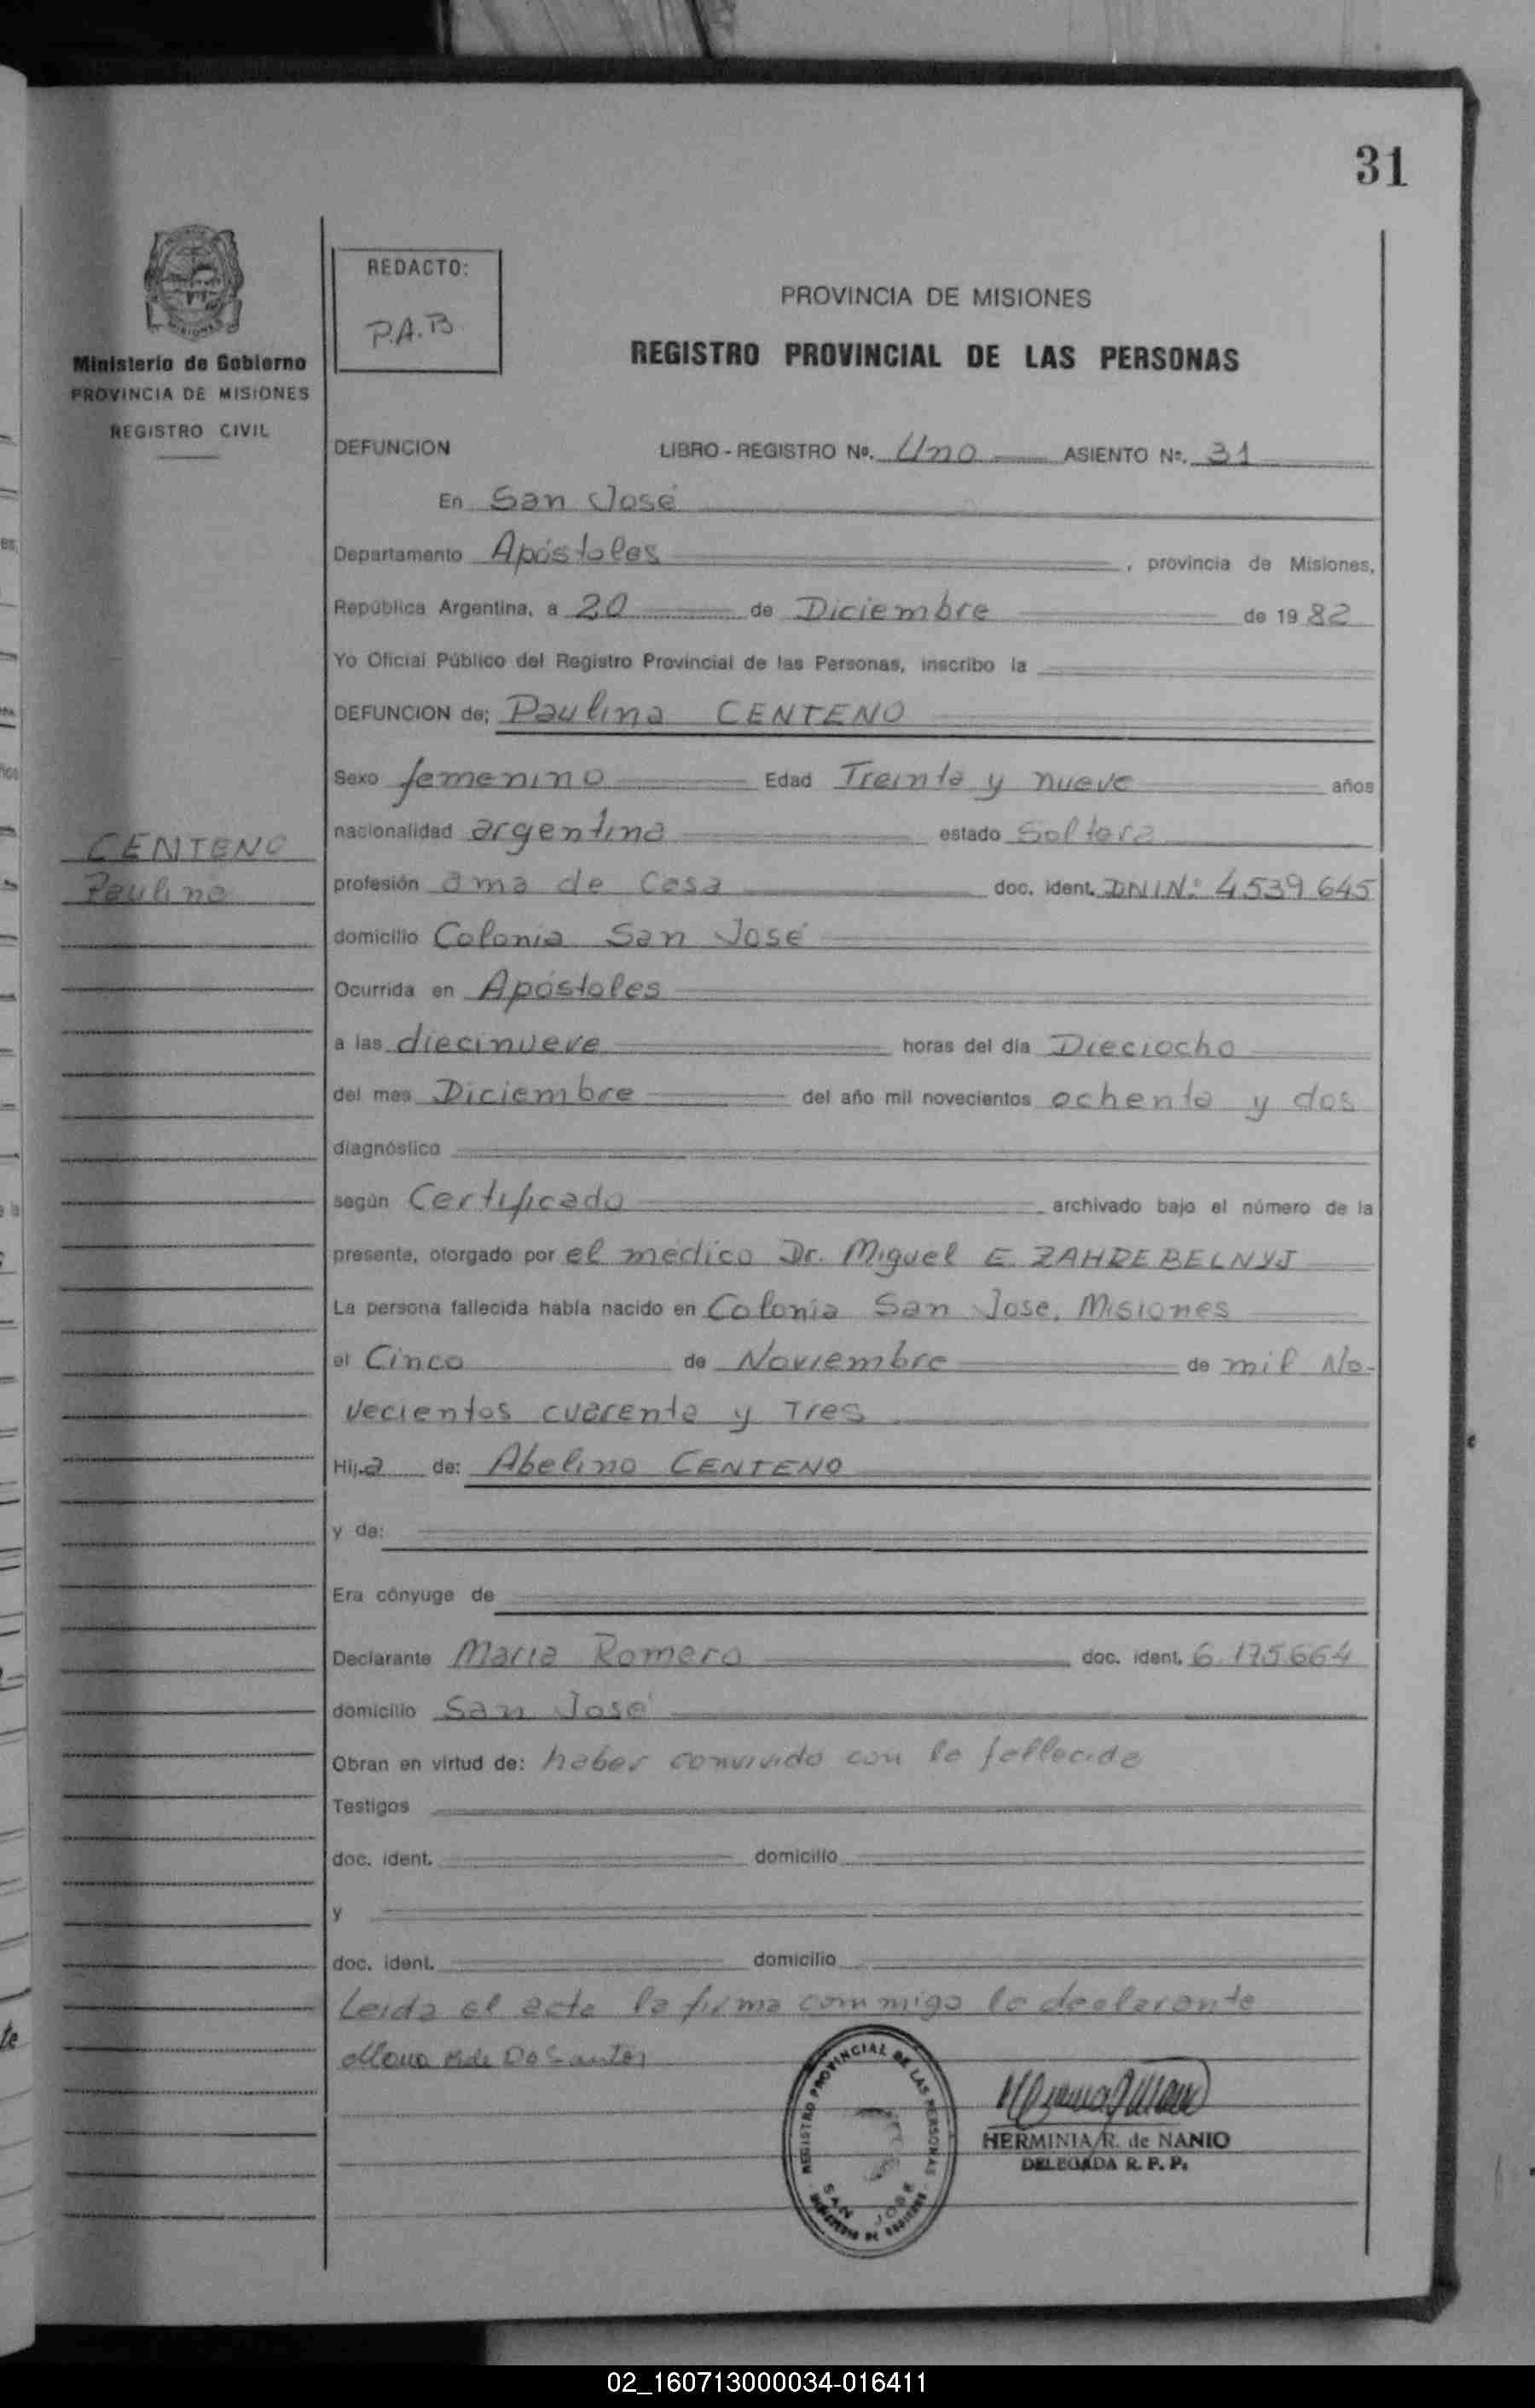 31
REDACTO:
P.A.B.
MISIONES
Ministerio de Gobierno
PROVINCIA DE MISIONES
REGISTRO CIVIL
CENTENO
Paulina
PROVINCIA DE MISIONES
REGISTRO PROVINCIAL DE LAS PERSONAS
DEFUNCION LIBRO - REGISTRO Nº. Uno ASIENTO Nº. 31
En San José
Departamento Apóstoles, provincia de Misiones,
República Argentina, a 20 de Diciembre de 1982
Yo Oficial Público del Registro Provincial de las Personas, inscribo la
DEFUNCION de; Paulina CENTENO
Sexo femenino Edad Treinta y nueve años
nacionalidad argentina estado Soltera
profesión ama de casa doc. ident. DNI Nº 4.539.645
domicilio Colonia San José
Ocurrida en Apóstoles
a las diecinueve horas del día Dieciocho
del mes Diciembre del año mil novecientos ochenta y dos
diagnóstico
según Certificado archivado bajo el número de la
presente, otorgado por el médico Dr. Miguel E. ZAHREBELNYJ
La persona fallecida había nacido en Colonia San Jose, Misiones
el Cinco de Noviembre de mil No-
vecientos cuarenta y Tres
Hija de: Abelino CENTENO
y de:
Era cónyuge de
Declarante Maria Romero doc. ident. 6.175.664
domicilio San José
Obran en virtud de: haber convivido con la fallecida
Testigos
doc. ident. domicilio
y
doc. ident. domicilio
Leida el acta la firma commigo la declarante
REGISTRO PROVINCIAL DE LAS PERSONAS
SAN JOSE
MINISTERIO DE GOBIERNO
HERMINIA R. de NANIO
DELEGADA R. P. P.
02_160713000034-016411